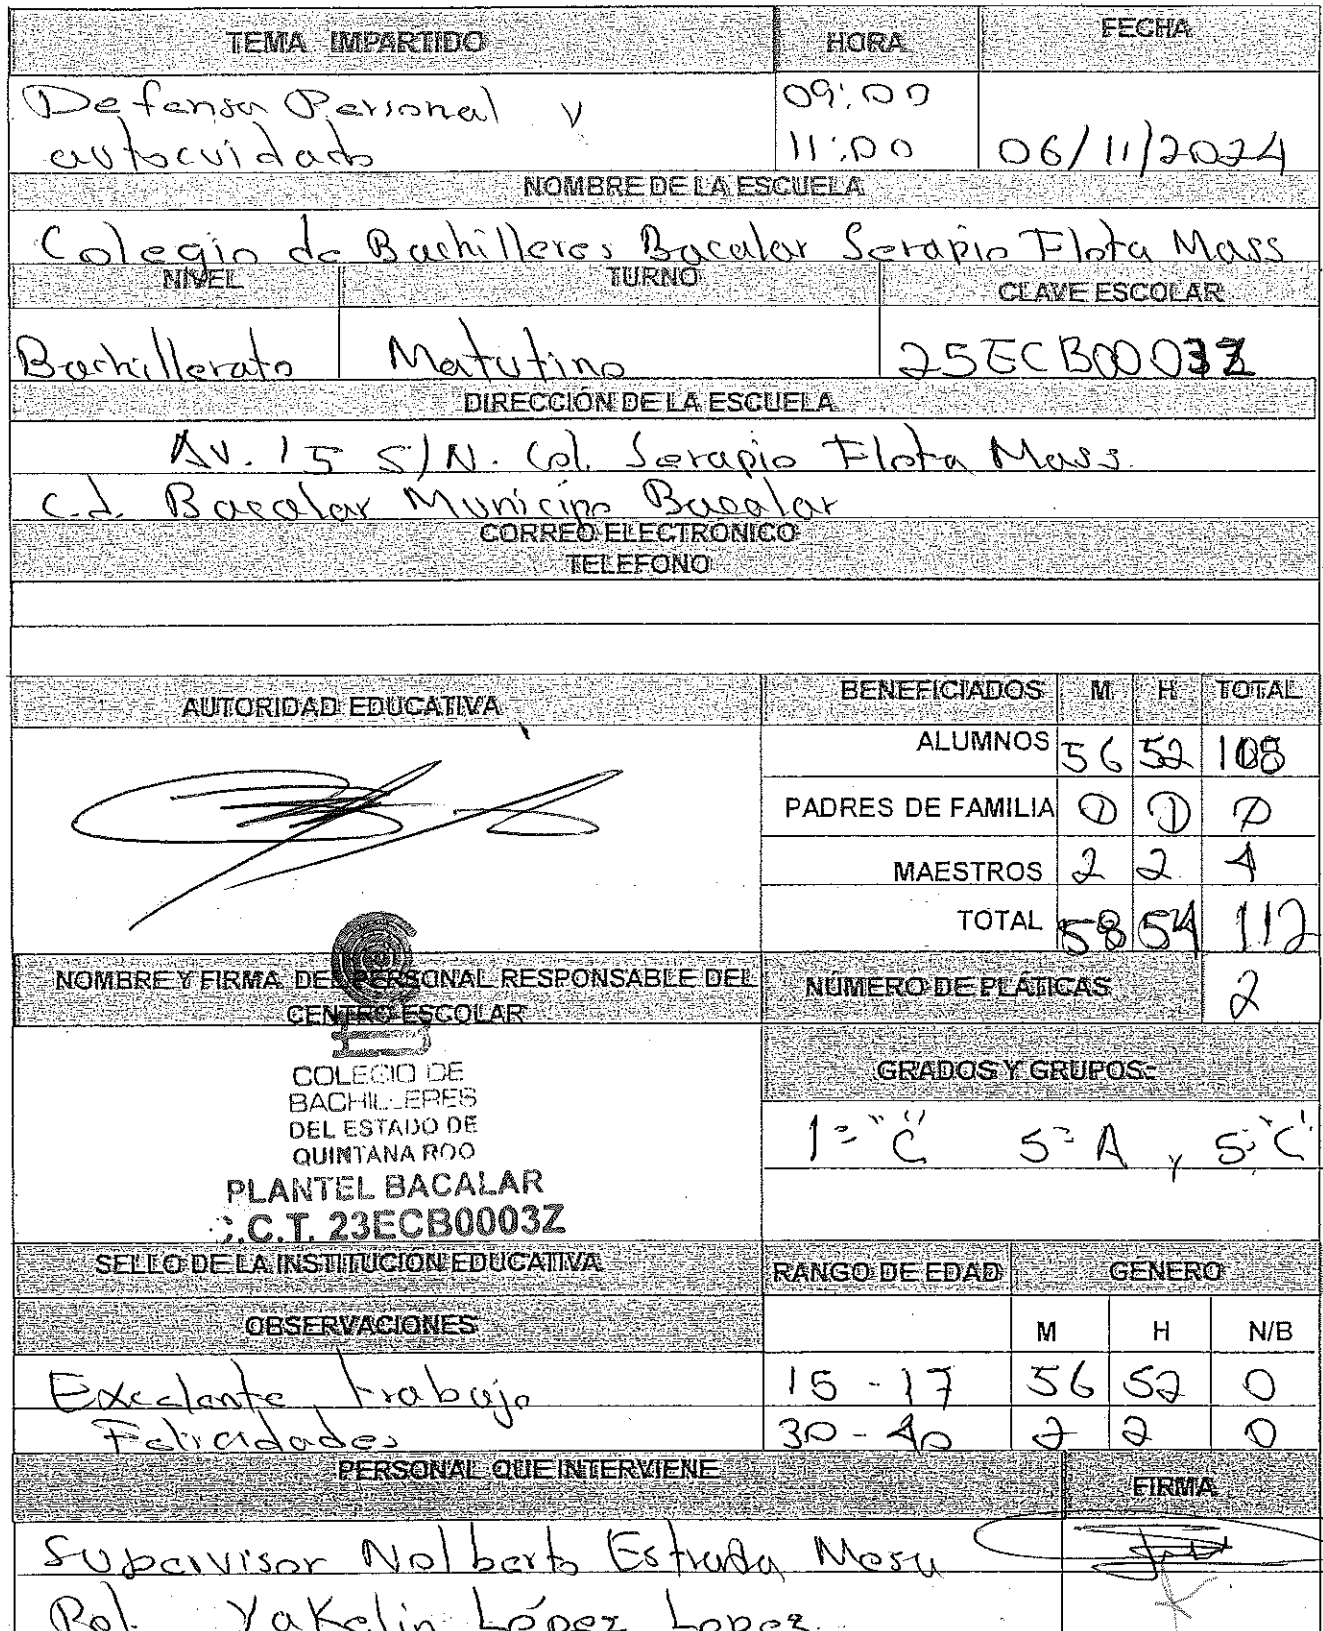 TEMA IMPARTIDO HORA FECHA
Defensa Personal y 09:00
autocuidado 11:00 06/11/2024
NOMBRE DE LA ESCUELA
Colegio de Bachilleres Bacalar Serapio Flota Mass
NIVEL TURNO CLAVE ESCOLAR
Bachillerato Matutino 25ECB0003Z
DIRECCIÓN DE LA ESCUELA
Av. 15 S/N. Col. Serapio Flota Mass.
C.d. Bacalar Municipo Bacalar
CORREO ELECTRÓNICO
TELEFONO
AUTORIDAD EDUCATIVA BENEFICIADOS M H TOTAL
ALUMNOS 56 52 108
PADRES DE FAMILIA 0 0 0
MAESTROS 2 2 4
TOTAL 58 54 112
NOMBRE Y FIRMA DEL PERSONAL RESPONSABLE DEL CENTRO ESCOLAR NÚMERO DE PLÁTICAS 2
COLEGIO DE
BACHILLERES
DEL ESTADO DE
QUINTANA ROO
PLANTEL BACALAR
C.C.T. 23ECB0003Z
GRADOS Y GRUPOS:
1º "C" 5º A y 5º "C"
SELLO DE LA INSTITUCION EDUCATIVA RANGO DE EDAD GENERO
OBSERVACIONES M H N/B
Excelente trabajo 15 - 17 56 52 0
Felicidades 30 - 40 2 2 0
PERSONAL QUE INTERVIENE FIRMA
Supervisor Nolberto Estrada Mesu
Pol. Yakelin López Lopez